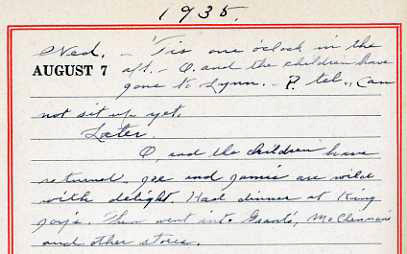 1935.
Wed. – 'Tis one o'clock in the
AUGUST 7 aft. – O. and the children have
gone to Lynn. – P. tel., Can
not sit up yet.
Later.
O. and the children have
returned. Jee and Jamie are wild
with delight. Had dinner at King
Joy's. Then went into Grant's, McClennan's
and other stores.